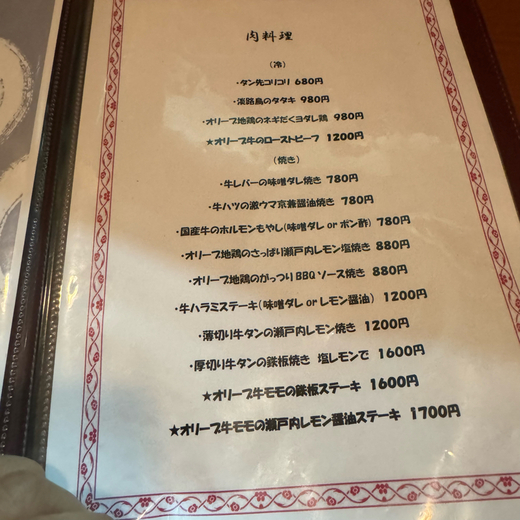 肉料理
(冷)
・タン先コリコリ 680円
・淡路鳥のタタキ 980円
・オリーブ地鶏のネギだくヨダレ鶏 980円
★オリーブ牛のローストビーフ 1200円
(焼き)
・牛レバーの味噌ダレ焼き 780円
・牛ハツの激ウマ京葱醤油焼き 780円
・国産牛のホルモンもやし(味噌ダレ or ポン酢) 780円
・オリーブ地鶏のさっぱり瀬戸内レモン塩焼き 880円
・オリーブ地鶏のがっつりBBQソース焼き 880円
・牛ハラミステーキ(味噌ダレ or レモン醤油) 1200円
・薄切り牛タンの瀬戸内レモン焼き 1200円
・厚切り牛タンの鉄板焼き 塩レモンで 1600円
★オリーブ牛モモの鉄板ステーキ 1600円
★オリーブ牛モモの瀬戸内レモン醤油ステーキ 1700円